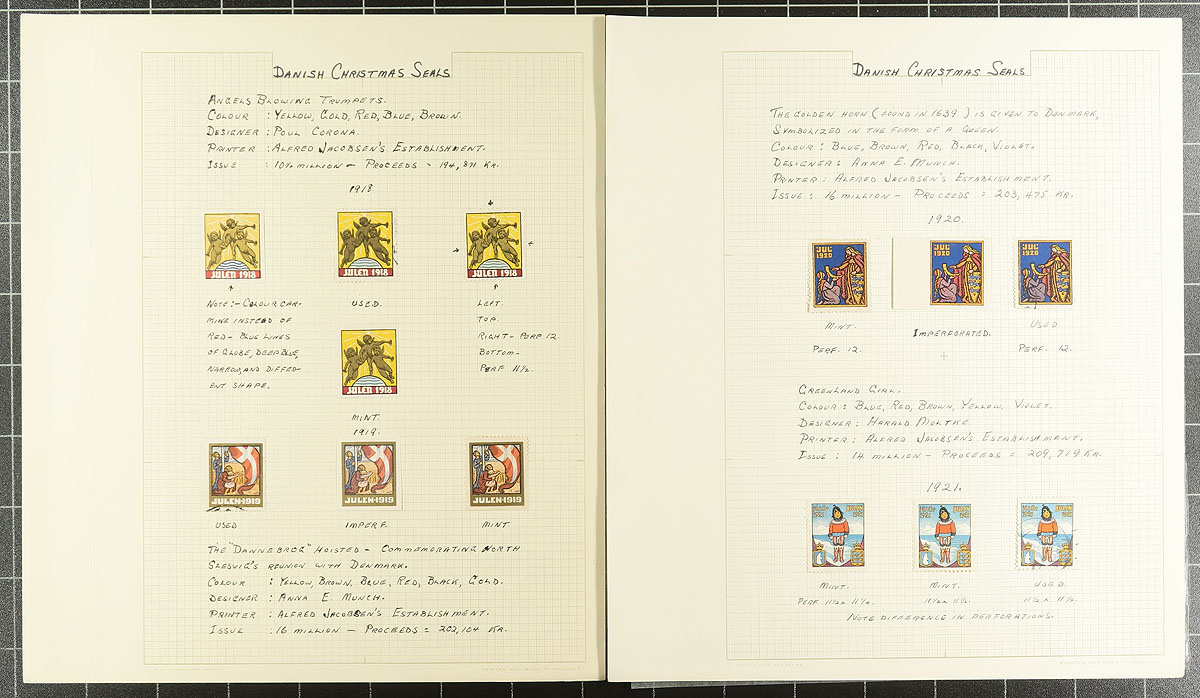 DANISH CHRISTMAS SEALS
ANGELS BLOWING TRUMPETS.
COLOUR : YELLOW, GOLD, RED, BLUE, BROWN.
DESIGNER : POUL CORONA.
PRINTER : ALFRED JACOBSEN'S ESTABLISHMENT.
ISSUE : 10¾ MILLION — PROCEEDS = 194,871 KR.
1918
JULEN 1918
JULEN 1918
JULEN 1918
NOTE:- COLOUR CAR-
MINE INSTEAD OF
RED - BLUE LINES
OF GLOBE, DEEP BLUE,
NARROW, AND DIFFER-
ENT SHAPE.
USED.
LEFT.
TOP.
RIGHT - PERF 12.
BOTTOM-
PERF 11½.
JULEN 1918
MINT.
1919.
JULEN·1919
JULEN·1919
JULEN·1919
USED
IMPERF.
MINT
THE "DANNEBROG" HOISTED - COMMEMORATING NORTH
SLESVIG'S REUNION WITH DENMARK.
COLOUR : YELLOW, BROWN, BLUE, RED, BLACK, GOLD.
DESIGNER : ANNA E. MUNCH.
PRINTER : ALFRED JACOBSEN'S ESTABLISHMENT.
ISSUE : 16 MILLION — PROCEEDS = 202,104 KR.
PRINTED AND MADE IN ENGLAND
DANISH CHRISTMAS SEALS
THE GOLDEN HORN (FOUND IN 1639) IS GIVEN TO DENMARK,
SYMBOLIZED IN THE FORM OF A QUEEN.
COLOUR : BLUE, BROWN, RED, BLACK, VIOLET.
DESIGNER : ANNA E. MUNCH.
PRINTER : ALFRED JACOBSEN'S ESTABLISHMENT.
ISSUE : 16 MILLION — PROCEEDS = 203,475 KR.
1920.
JUL 1920
JUL 1920
JUL 1920
MINT.
IMPERFORATED.
USED.
PERF. 12.
PERF. 12.
GREENLAND GIRL.
COLOUR : BLUE, RED, BROWN, YELLOW, VIOLET.
DESIGNER : HARALD MOLTKE.
PRINTER : ALFRED JACOBSEN'S ESTABLISHMENT.
ISSUE : 14 MILLION — PROCEEDS = 209,719 KR.
1921.
JULEN
JULEN
JULEN
MINT.
MINT.
USED.
PERF 11½ x 11½.
11½ x 11½.
11½ x 11½.
NOTE DIFFERENCE IN PERFORATIONS.
PRINTED AND MADE IN ENGLAND